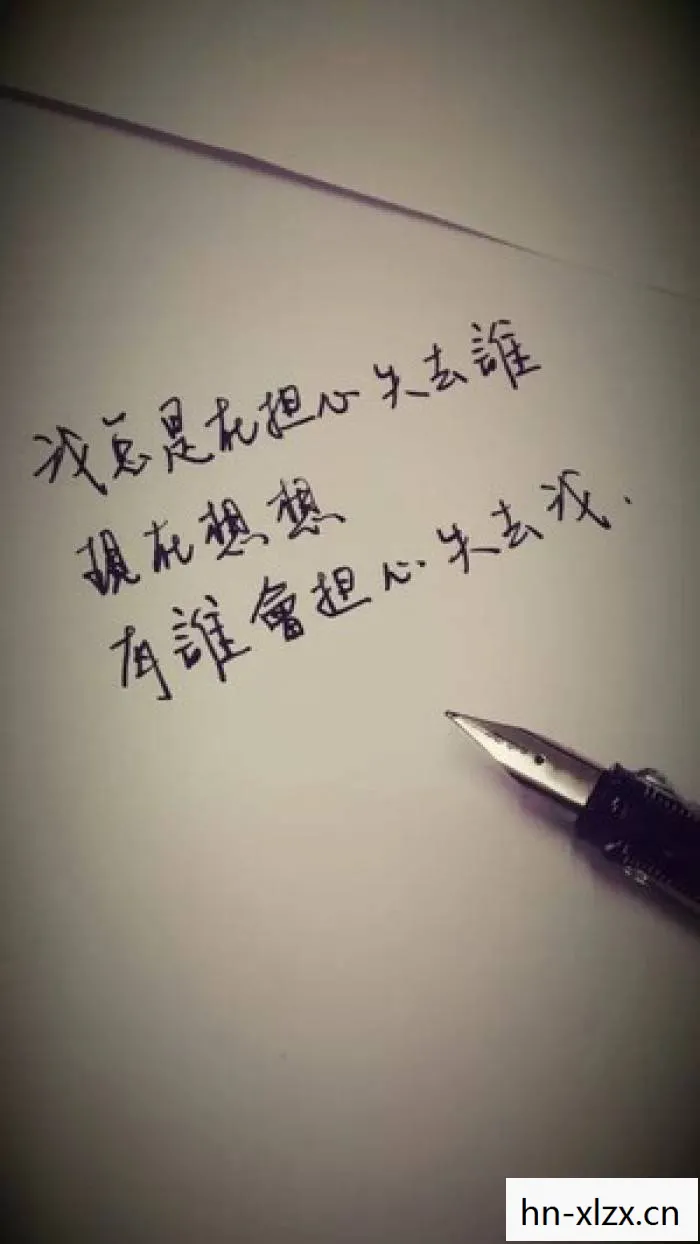 我总是在担心失去誰
現在想想
有誰會担心失去我.
hn-xlzx.cn